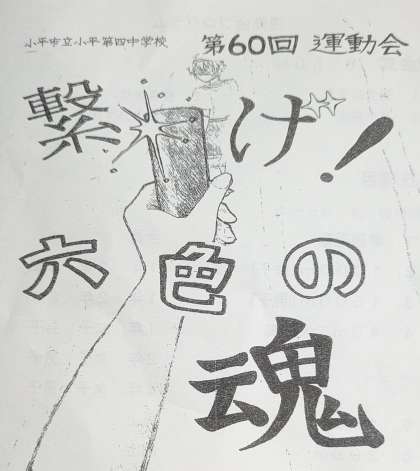 小平市立小平第四中学校 第60回 運動会
繋げ!
六色の
魂